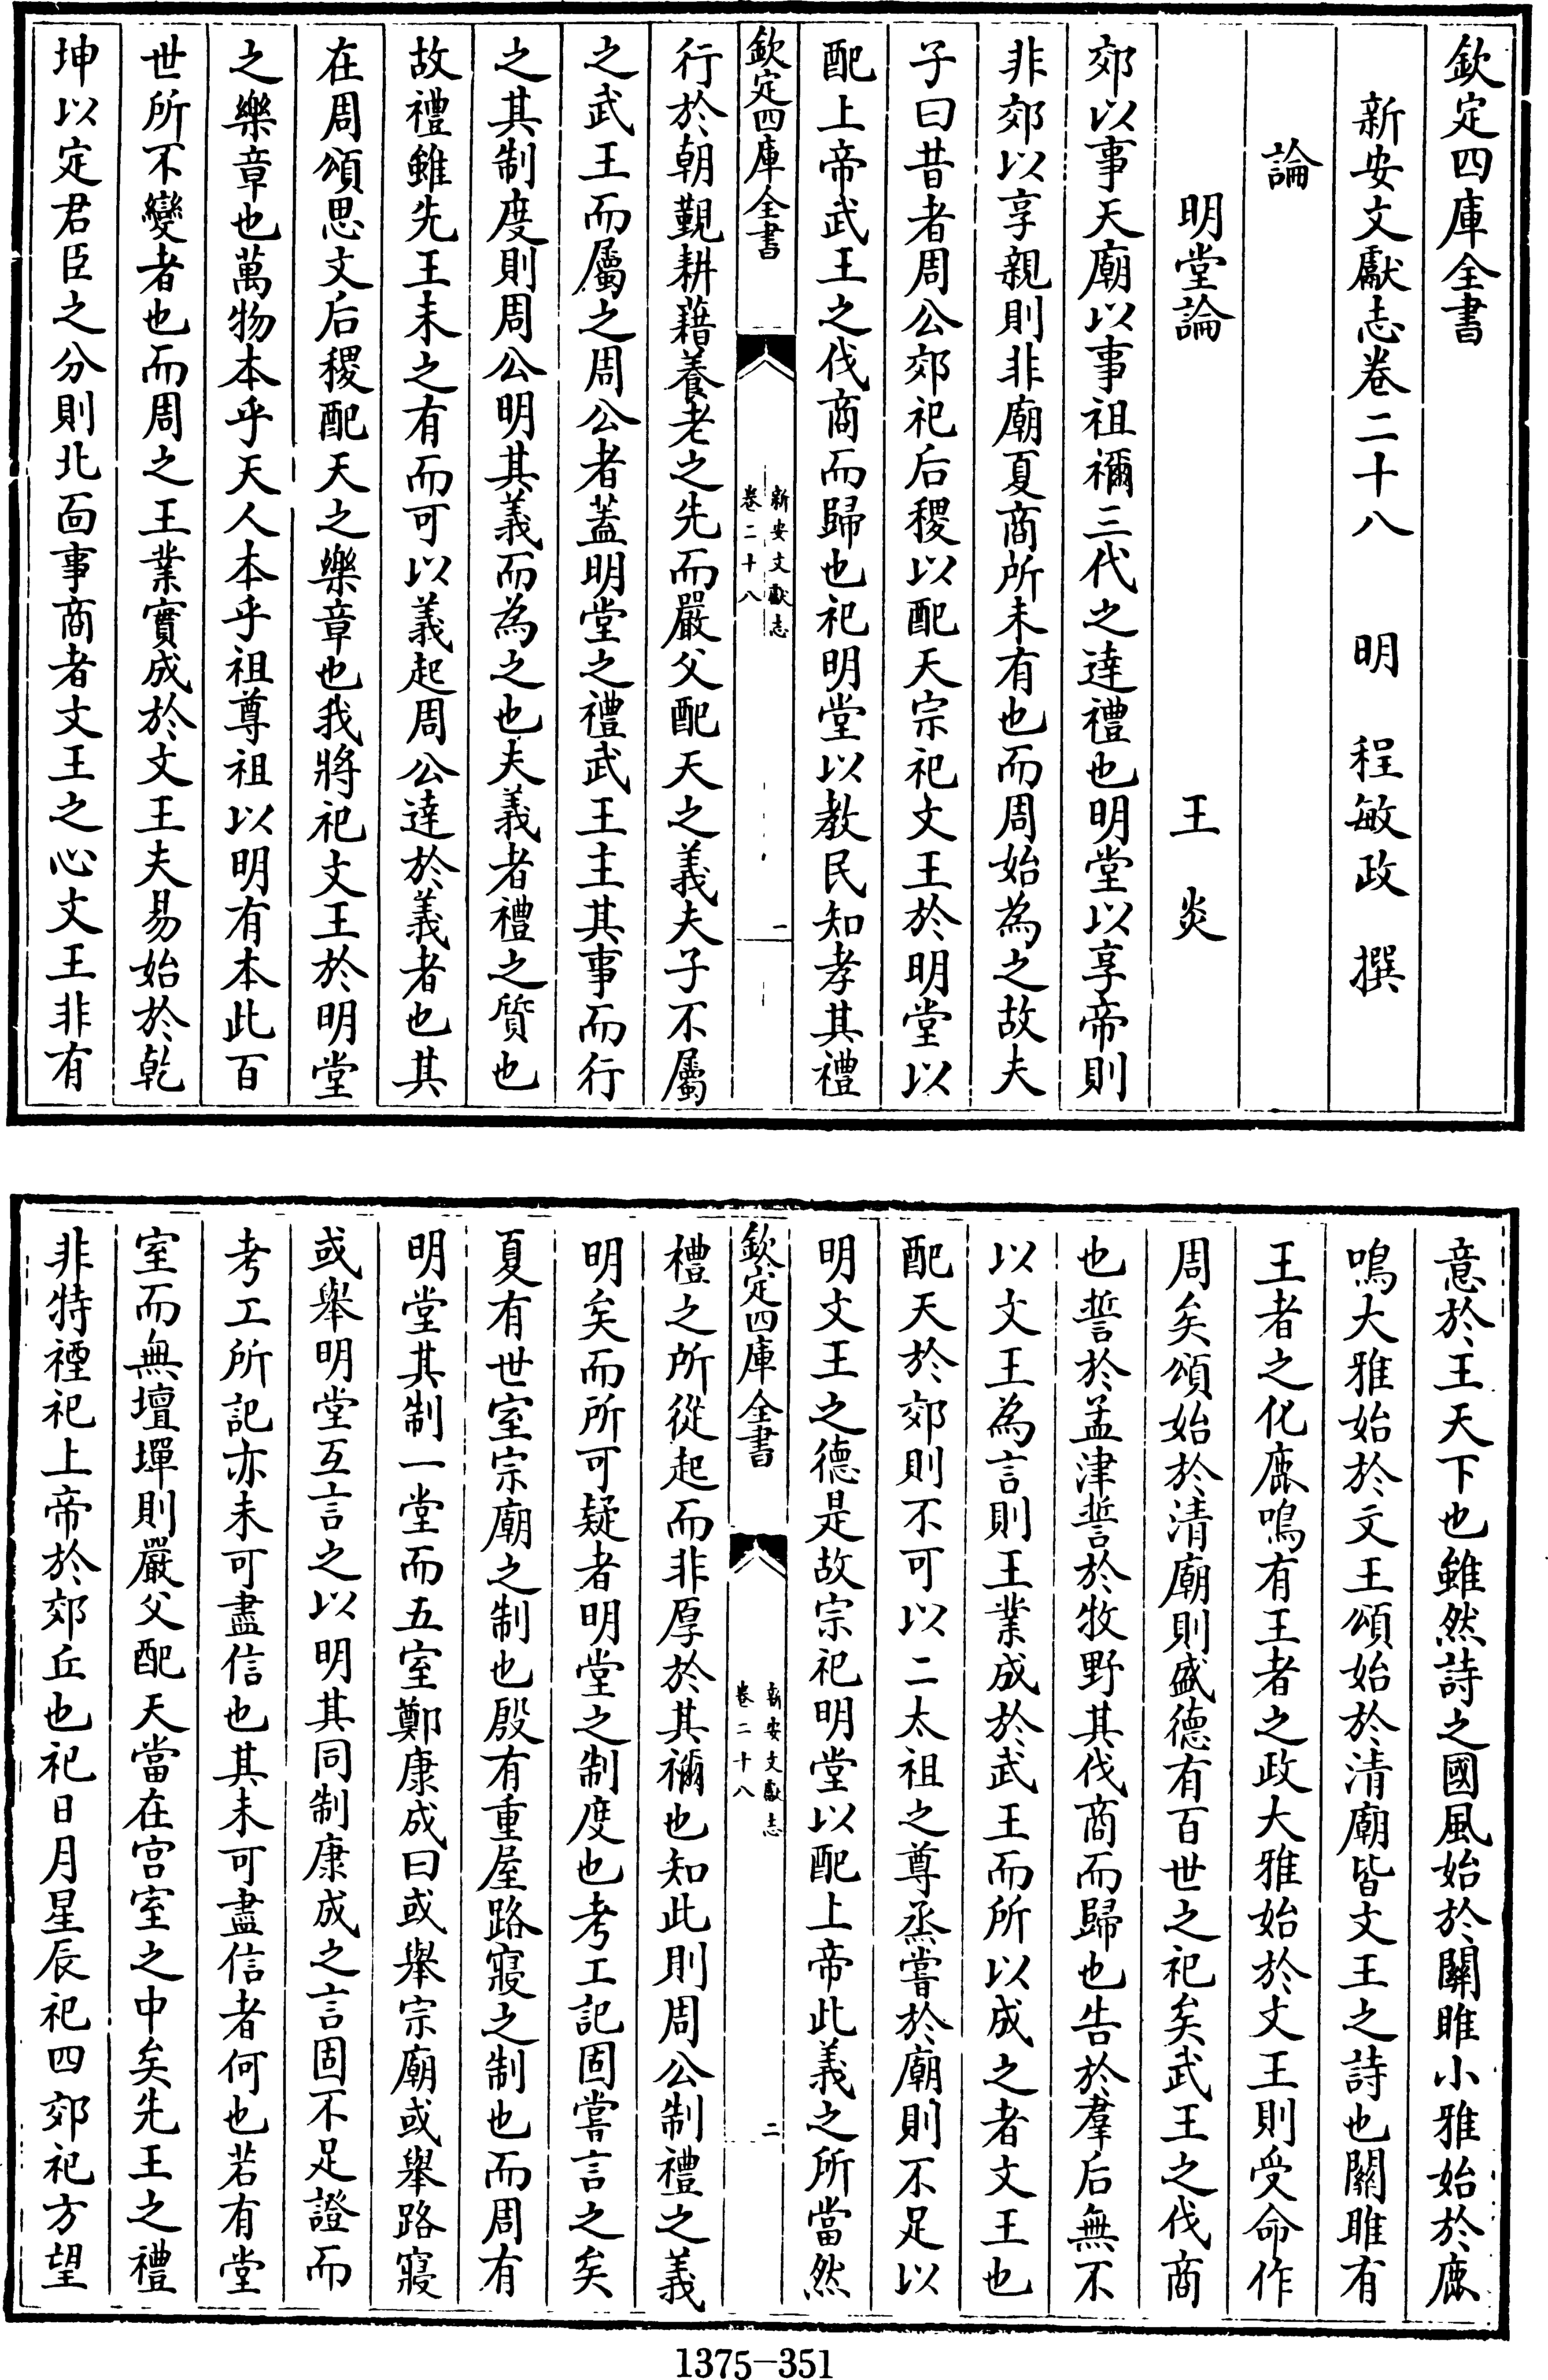 欽定四庫全書
新安文獻志卷二十八　明　程敏政　撰
論
明堂論　王炎
郊以事天廟以事祖禰三代之達禮也明堂以享帝則
非郊以享親則非廟夏商所未有也而周始為之故夫
子曰昔者周公郊祀后稷以配天宗祀文王於明堂以
配上帝武王之伐商而歸也祀明堂以教民知孝其禮
欽定四庫全書　新安文獻志卷二十八　一
行於朝覲耕藉養老之先而嚴父配天之義夫子不屬
之武王而屬之周公者蓋明堂之禮武王主其事而行
之其制度則周公明其義而為之也夫義者禮之質也
故禮雖先王未之有而可以義起周公達於義者也其
在周頌思文后稷配天之樂章也我將祀文王於明堂
之樂章也萬物本乎天人本乎祖尊祖以明有本此百
世所不變者也而周之王業實成於文王夫易始於乾
坤以定君臣之分則北面事商者文王之心文王非有
意於王天下也雖然詩之國風始於關雎小雅始於鹿
鳴大雅始於文王頌始於清廟皆文王之詩也關雎有
王者之化鹿鳴有王者之政大雅始於文王則受命作
周矣頌始於清廟則盛德有百世之祀矣武王之伐商
也誓於孟津誓於牧野其伐商而歸也告於羣后無不
以文王為言則王業成於武王而所以成之者文王也
配天於郊則不可以二太祖之尊烝嘗於廟則不足以
明文王之德是故宗祀明堂以配上帝此義之所當然
欽定四庫全書　新安文獻志卷二十八　二
禮之所從起而非厚於其禰也知此則周公制禮之義
明矣而所可疑者明堂之制度也考工記固嘗言之矣
夏有世室宗廟之制也殷有重屋路寢之制也而周有
明堂其制一堂而五室鄭康成曰或舉宗廟或舉路寢
或舉明堂互言之以明其同制康成之言固不足證而
考工所記亦未可盡信也其未可盡信者何也若有堂
室而無壇墠則嚴父配天當在宫室之中矣先王之禮
非特禋祀上帝於郊丘也祀日月星辰祀四郊祀方望
1375-351